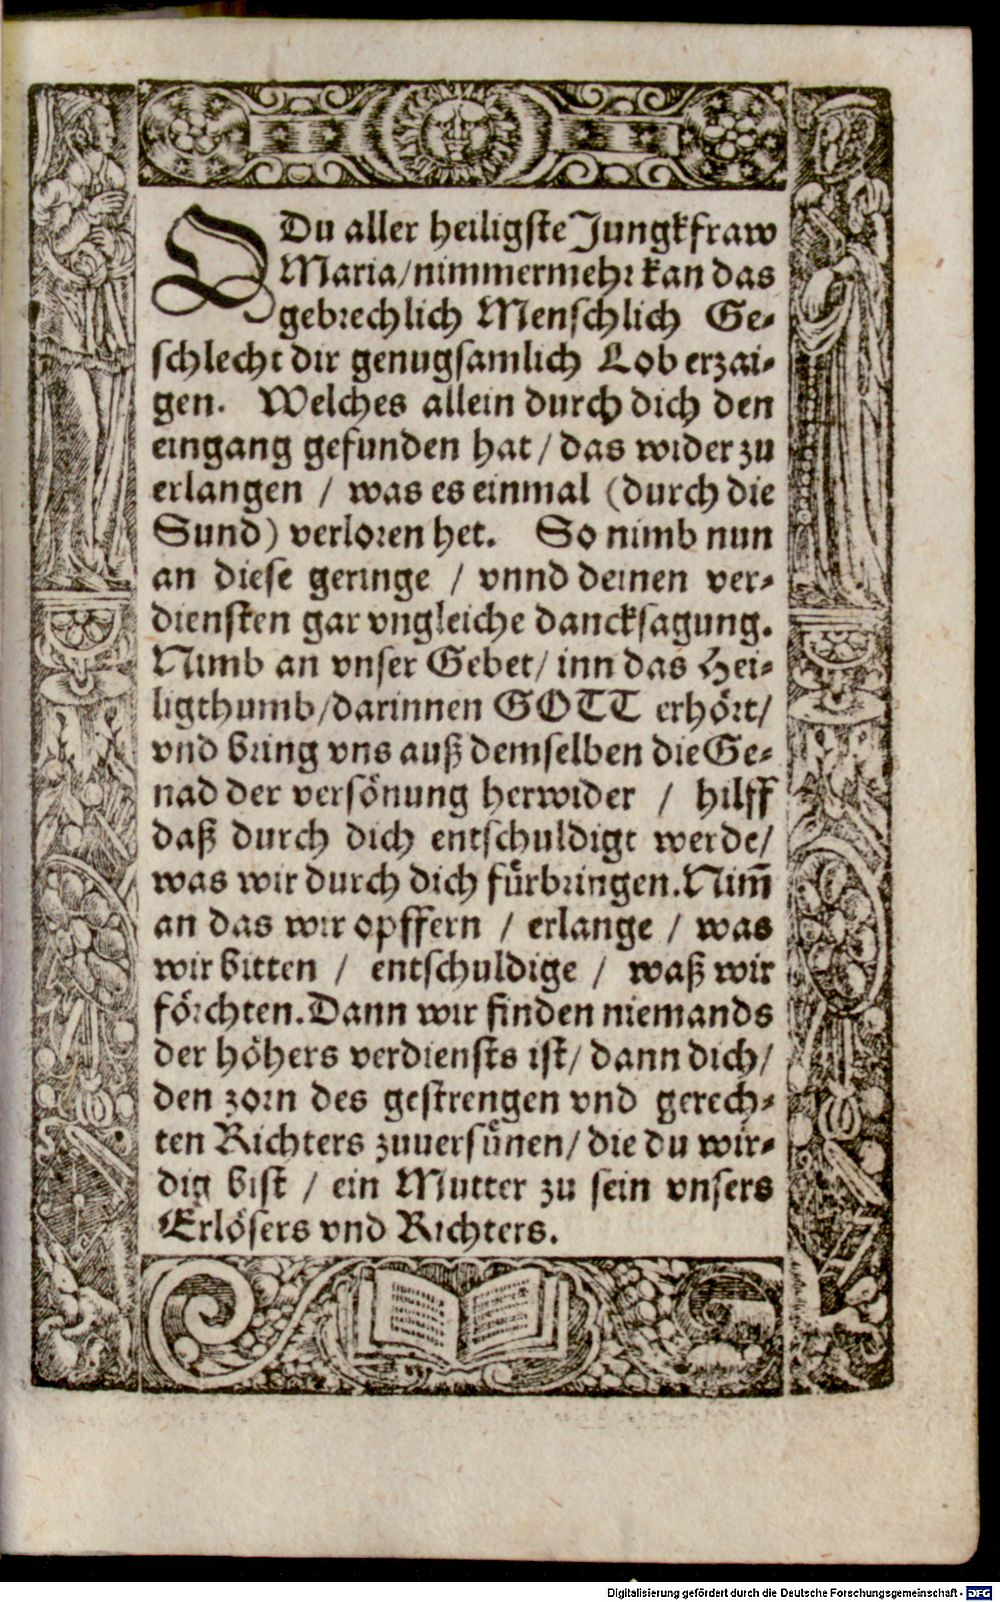 O Du aller heiligste Jungkfraw
Maria/nimmermehr kan das
gebrechlich Menschlich Ge-
schlecht dir genugsamlich Lob erzai-
gen. Welches allein durch dich den
eingang gefunden hat / das wider zu
erlangen / was es einmal (durch die
Sund) verloren het. So nimb nun
an diese geringe / vnnd deinen ver-
diensten gar vngleiche dancksagung.
Nimb an vnser Gebet/ inn das Hei-
ligthumb/darinnen GOTT erhört/
vnd bring vns auß demselben die Ge-
nad der versönung herwider / hilff
daß durch dich entschuldigt werde/
was wir durch dich fürbringen. Nim̄
an das wir opffern / erlange / was
wir bitten / entschuldige / waß wir
förchten. Dann wir finden niemands
der höhers verdiensts ist/ dann dich/
den zorn des gestrengen vnd gerech-
ten Richters zuuersünen/ die du wir-
dig bist / ein Mutter zu sein vnsers
Erlösers vnd Richters.
Digitalisierung gefördert durch die Deutsche Forschungsgemeinschaft - DFG